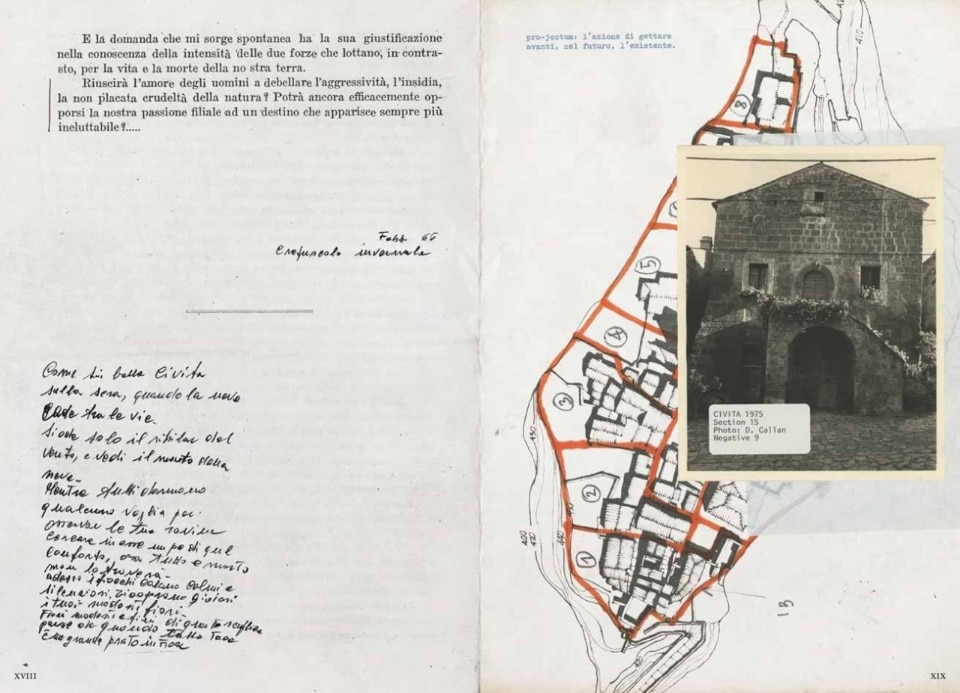 E la domanda che mi sorge spontanea ha la sua giustificazione
nella conoscenza della intensità delle due forze che lottano, in contra-
sto, per la vita e la morte della no stra terra.
Riuscirà l'amore degli uomini a debellare l'aggressività, l'insidia,
la non placata crudeltà della natura? Potrà ancora efficacemente op-
porsi la nostra passione filiale ad un destino che apparisce sempre più
ineluttabile?.....
Febb. 66
Crepuscolo invernale
Come sei bella Civita
sulla sera, quando la neve
cade tra le vie.
Si ode solo il sibilar del
vento, e vedi il manto della
neve.
Mentre tutti dormono
qualcuno veglia per
osservar le tue rovine
cercare in esse un po di quel
conforto, ora tutto è morto
non lo troverà
adesso i fiocchi calano calmi e
silenziosi,
i tuoi modesti fiori.
Fiori modesti e fini
pare che quando di
è un grande prato in fiore
XVIII
pro-jectum: l'azione di gettare
avanti, nel futuro, l'esistente.
410
8
5
4
3
2
1
430
410
400
CIVITA 1975
Section 15
Photo: D. Callan
Negative 9
XIX